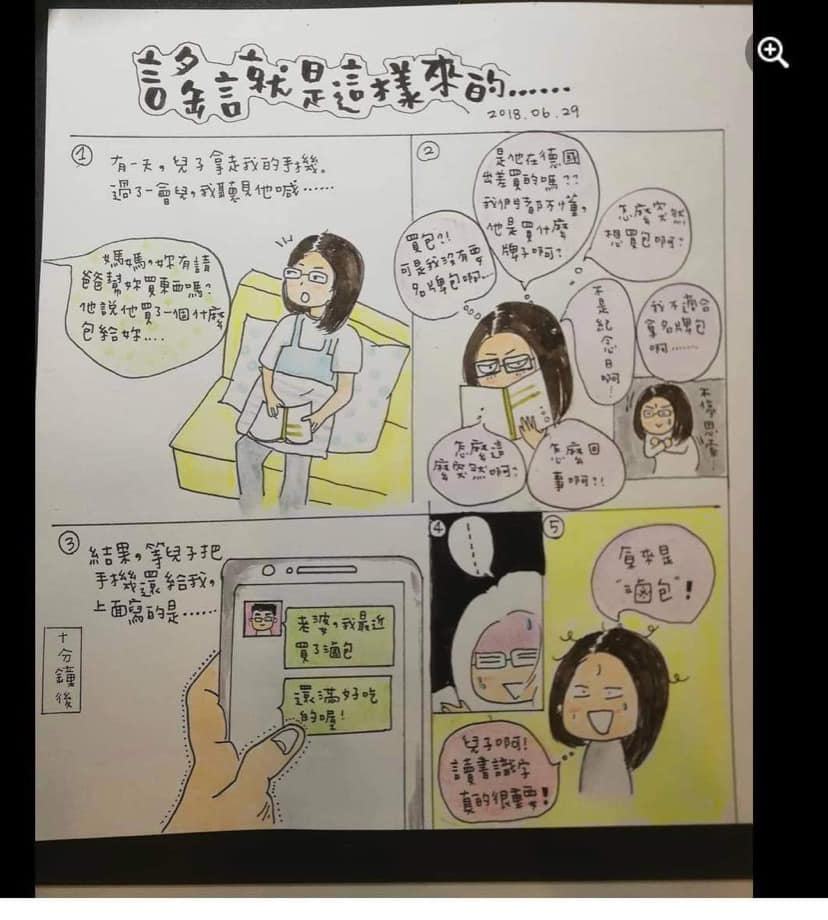 謠言就是這樣來的......
2018.06.29
①
有一天，兒子拿走我的手機。
過了一會兒，我聽見他喊......
媽媽，妳有請
爸幫妳買東西嗎?
他說他買了一個什麼
包給妳....
②
買包?!
可是我沒有要
名牌包啊...
是他在德國
出差買的嗎??
我們都不懂,
他是買什麼
牌子啊?
怎麼突然
想買包啊?
不是紀念日啊!
我不適合
拿名牌包
啊......
不停思
怎麼這
麼突然啊?
怎麼回
事啊?!
③
結果，等兒子把
手機還給我，
上面寫的是......
十分鐘後
老婆，我最近
買了滷包
還滿好吃
的喔!
④
⑤
原來是
"滷包"!
兒子啊!
讀書識字
真的很重要!